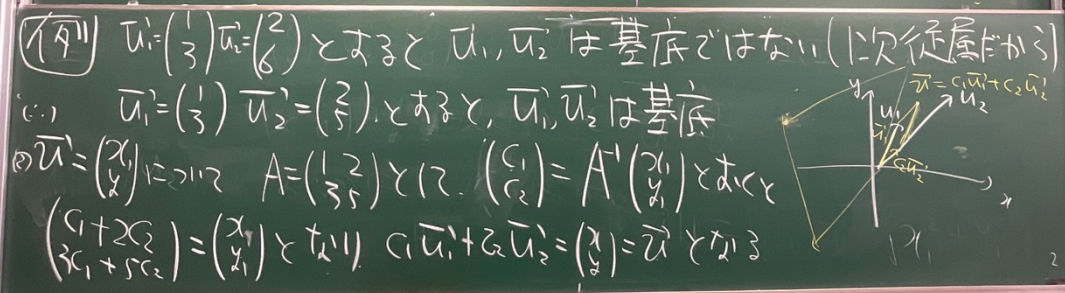 例 u₁=(1 3) u₂=(2 6) とすると u₁, u₂ は基底ではない(1次従属だから)
(∵) u₁=(1 3) u₂=(2 5) とすると, u₁, u₂ は基底
u=(x y)について A=(1 2 3 5)として. (c₁ c₂)=A⁻¹(x y)とおくと
(c₁+2c₂ 3c₁+5c₂)=(x y)となり c₁u₁+c₂u₂=(x y)=uとなる
y
u=c₁u₁+c₂u₂
u₁
u₂
c₂u₂
x
2